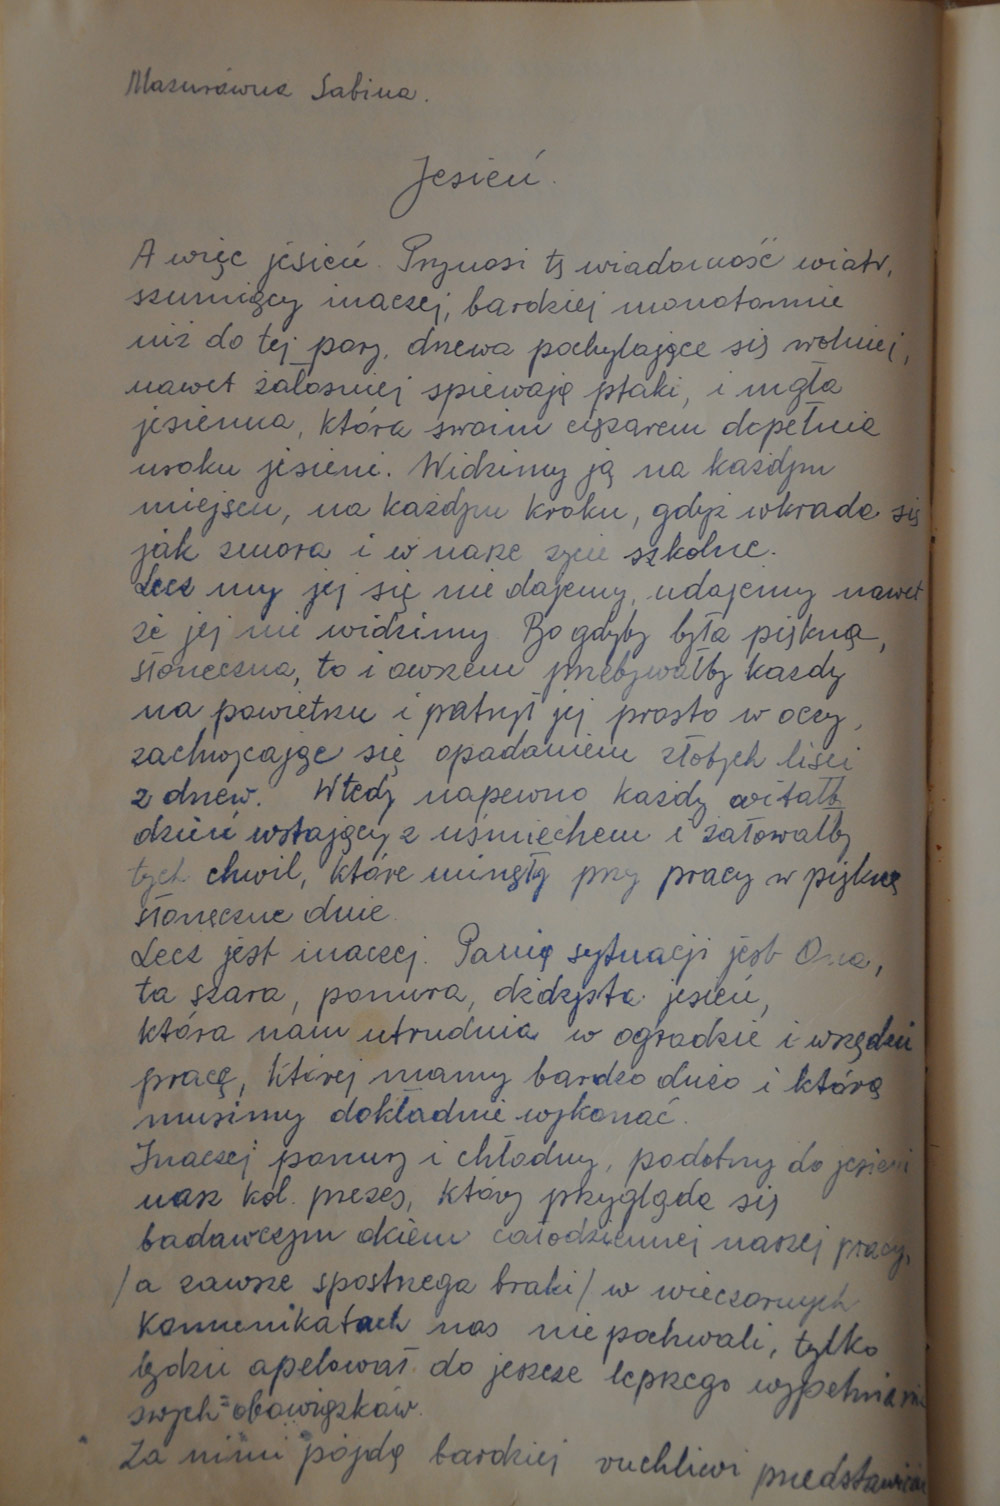 Mazurówna Sabina.
Jesień.
A więc jesień. Przynosi tę wiadomość wiatr,
szumiący inaczej, bardziej monotonnie
niż do tej pory, drzewa pochylające się wolniej,
nawet żałośniej śpiewają ptaki, i mgła
jesienna, która swoim ciężarem dopełnia
uroku jesieni. Widzimy ją na każdym
miejscu, na każdym kroku, gdyż wkrada się
jak zmora i w nasze życie szkolne.
Lecz my jej się nie dajemy, udajemy nawet
że jej nie widzimy. Bo gdyby była piękną,
słoneczna, to i owszem przebywałby każdy
na powietrzu i patrzył jej prosto w oczy,
zachwycając się opadaniem złotych liści
z drzew. Wtedy napewno każdy witałby
dzień wstający z uśmiechem i żałowałby
tych chwil, które minęły przy pracy w piękne
słoneczne dnie.
Lecz jest inaczej. Panią sytuacji jest Ona,
ta szara, ponura, dżdżysta jesień,
która nam utrudnia w ogrodzie i wszędzie
pracę, której mamy bardzo dużo i którą
musimy dokładnie wykonać.
Inaczej ponury i chłodny, podobny do jesieni
nasz kol. prezes, który przygląda się
badawczym okiem całodziennej naszej pracy,
/a zawsze spostrzega braki/ w wieczornych
komunikatach nas nie pochwali, tylko
będzie apelował do jeszcze lepszego wypełniania
swych obowiązków.
Za nimi pójdą bardziej ruchliwi